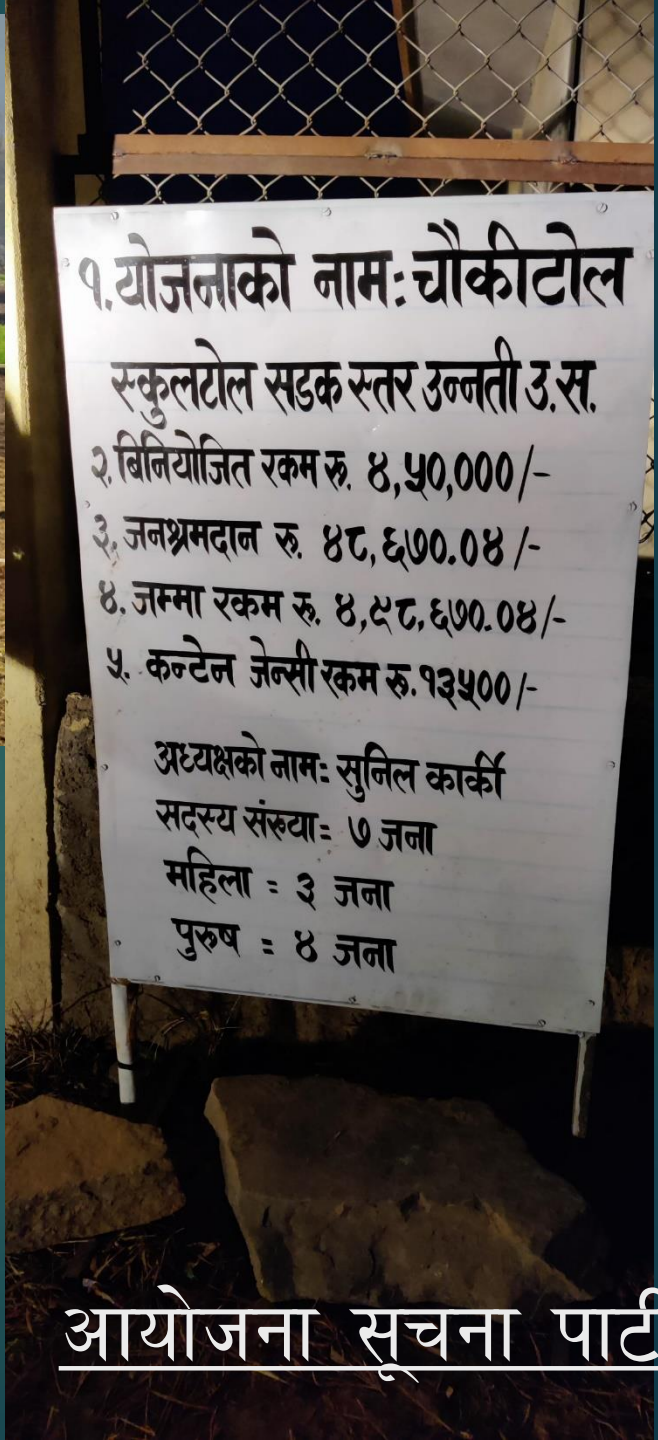 १. योजनाको नाम: चौकीटोल
स्कुलटोल सडक स्तर उन्नती उ.स.
२. बिनियोजित रकम रू. ४,५०,०००/-
३. जनश्रमदान रू. ४८,६७०.०४/-
४. जम्मा रकम रू. ४,९८,६७०.०४/-
५. कन्टेन जेन्सी रकम रू. १३५००/-
अध्यक्षको नाम: सुनिल कार्की
सदस्य संख्या= ७ जना
महिला = ३ जना
पुरुष = ४ जना
आयोजना सूचना पाटी